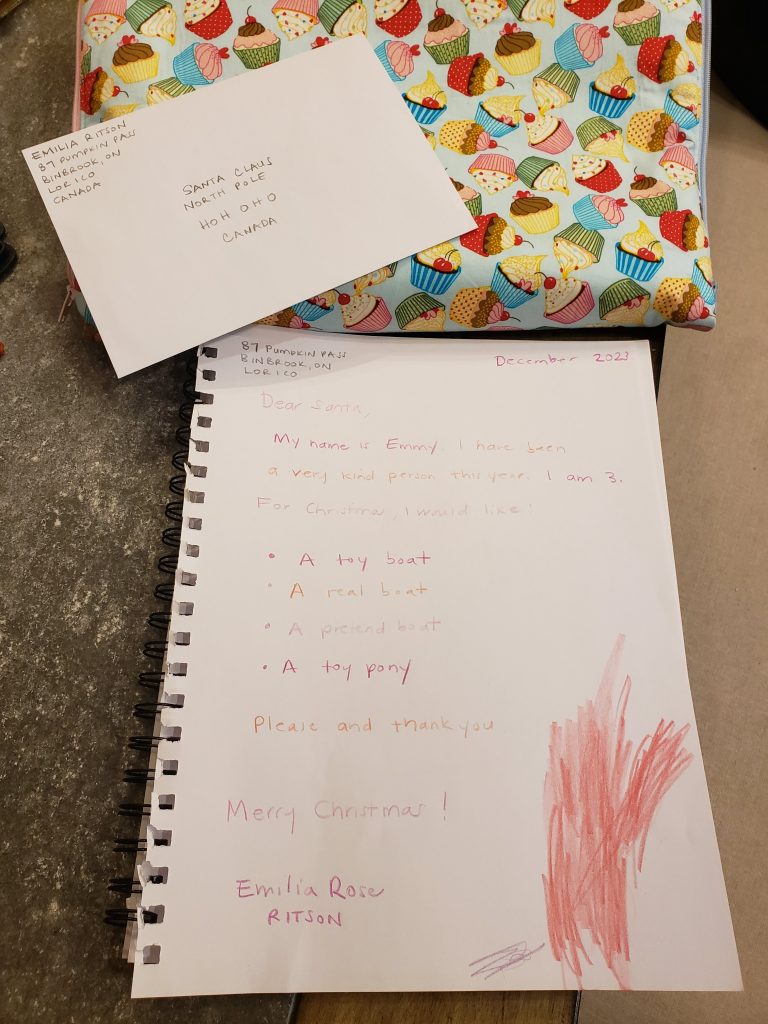 EMILIA RITSON
87 PUMPKIN PASS
BINBROOK, ON
LOR ICO
CANADA
SANTA CLAUS
NORTH POLE
HOH OHO
CANADA
87 PUMPKIN PASS
BINBROOK, ON
LOR ICO
December 2023
Dear Santa,
My name is Emmy. I have been
a very kind person this year. I am 3.
For Christmas, I would like:
• A toy boat
• A real boat
• A pretend boat
• A toy pony
Please and thank you
Merry Christmas!
Emilia Rose
RITSON